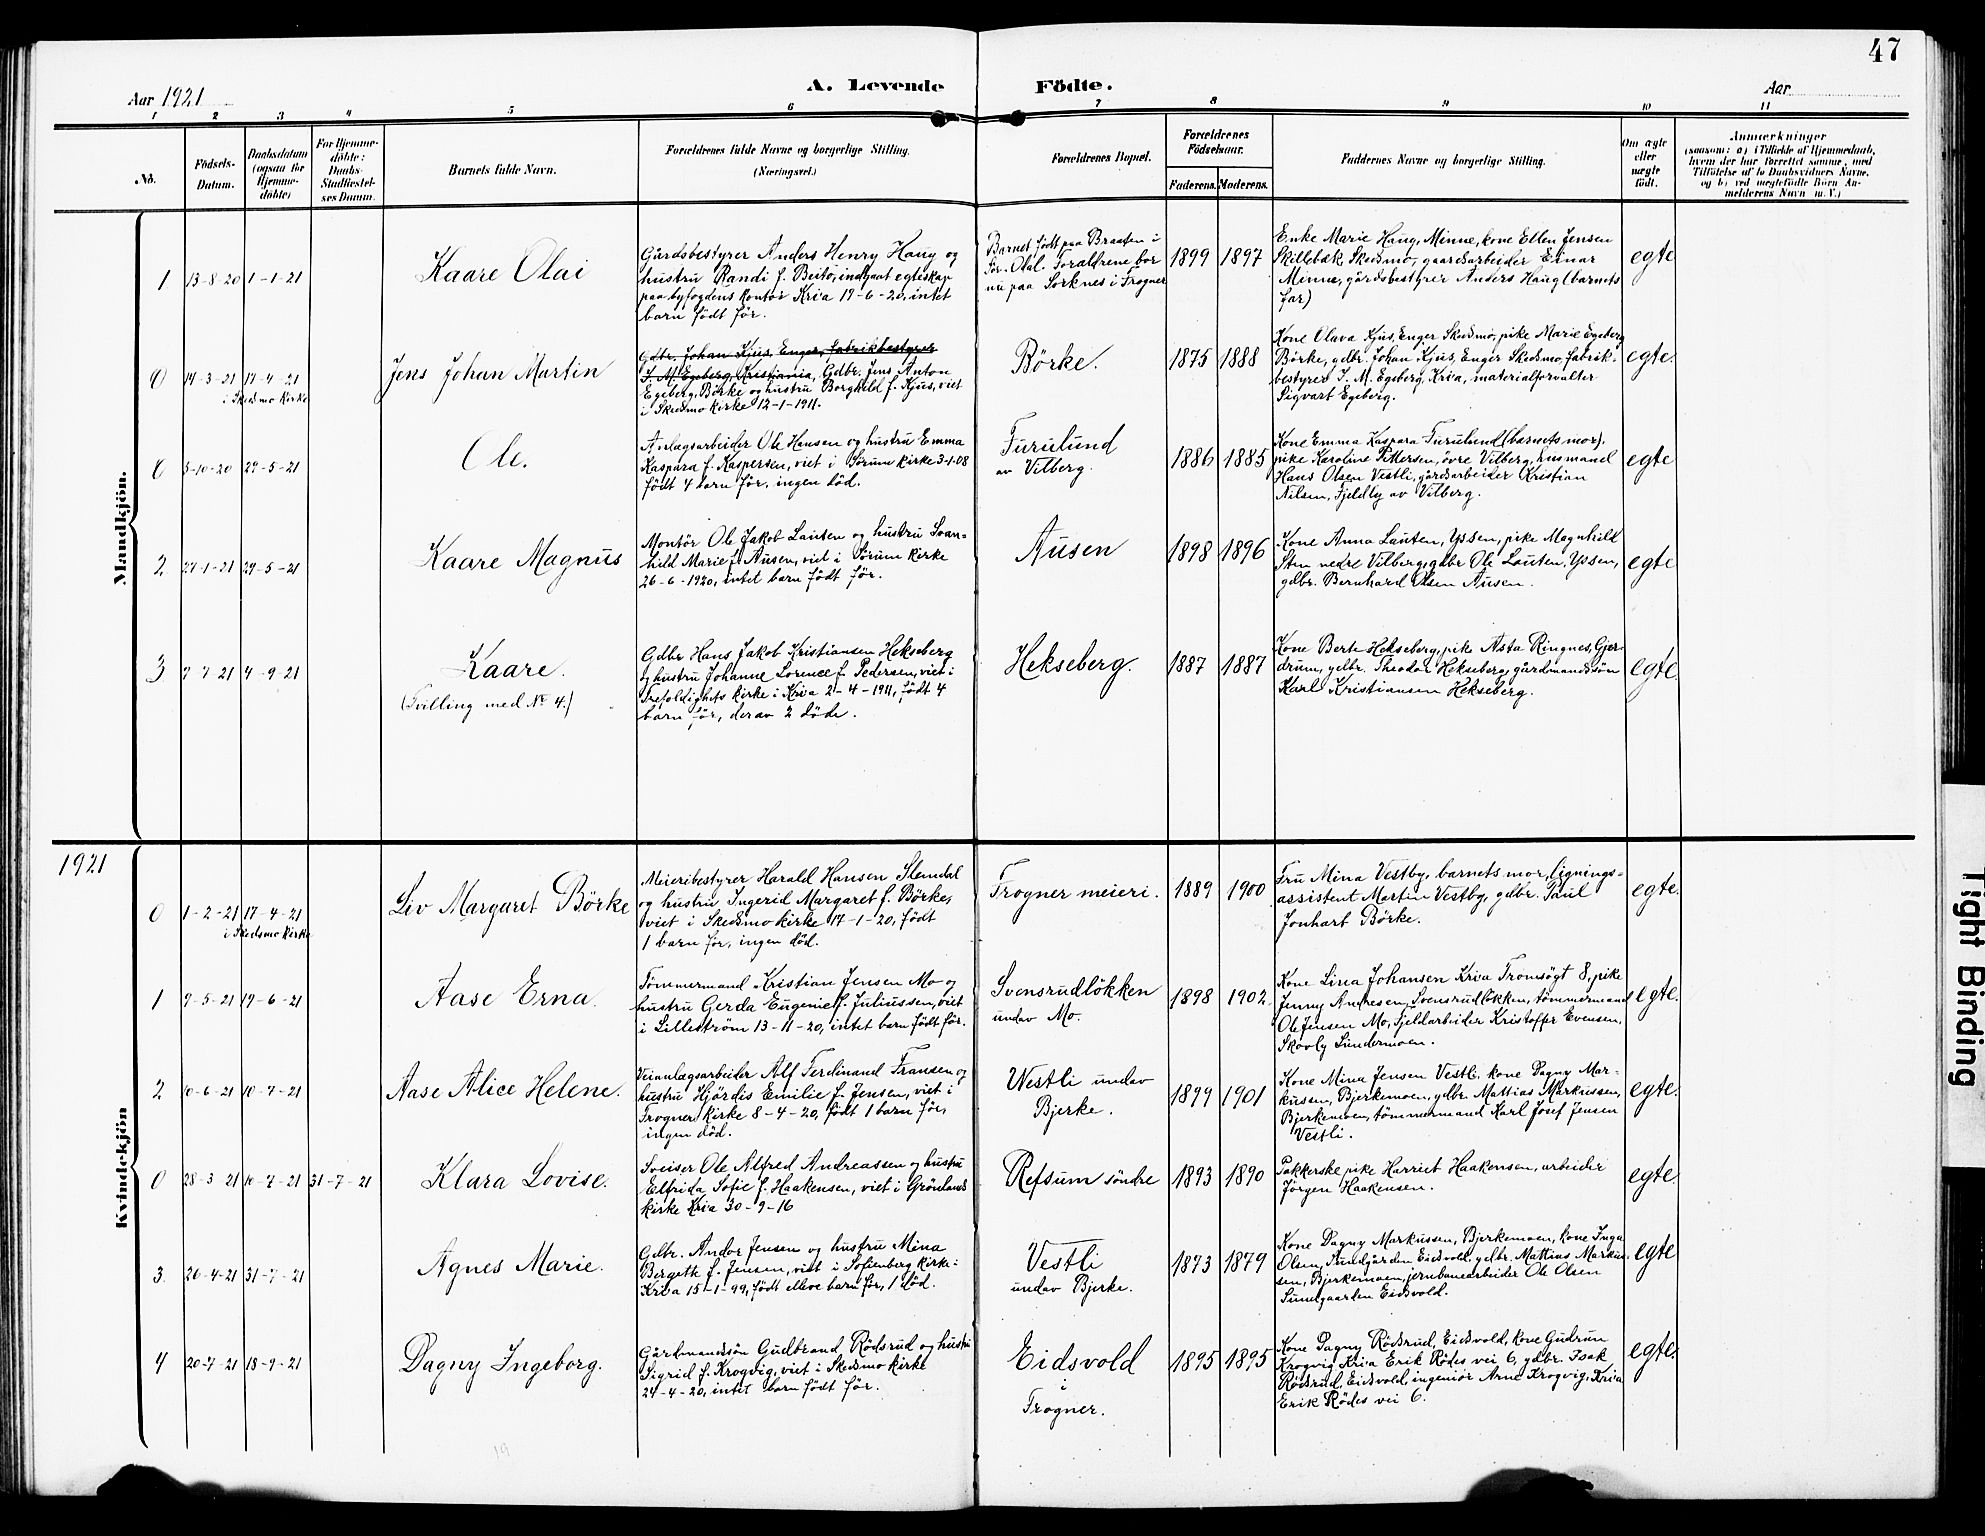 47
Aar 1921
A. Levende Födte.
Aar
1 2 3 4 5 6 7 8 9 10 11
No.
Födsels-
Datum.
Daabsdatum
(ogsaa for
Hjemme-
döbte)
For Hjemme-
döbte:
Daabs-
Stadfæstel-
ses Datum.
Barnets fulde Navn.
Forældrenes fulde Navne og borgerlige Stilling.
(Næringsvei.)
Forældrenes Bopæl.
Forældrenes
Födselsaar.
Faderens. Moderens.
Faddernes Navne og borgerlige Stilling.
Om ægte
eller
uægte
födt.
Anmærkninger
(saasom: a) i Tilfælde af Hjemmedaab,
hvem der har forrettet samme, med
Tilföielse af to Daabsvidners Navne,
og b) ved uægtefödte Börn An-
melderens Navn m. V.)
Mandkjön.
1 13-8-20 1-1-21
Kaare Olai
Gårdsbestyrer Anders Henry Haug og
hustru Randi f. Beito, indgaat egteskap
paa byfogdens kontor Kria 19-6-20, intet
barn födt för.
Barnet födt paa Braaten i
Sör-Odal. Foraldrene bor
nu paa Sorknes i Frogner
1899 1897
Enke Marie Haug, Minne, kone Ellen Jensen
Skillebæk Skedsmo, gaardsarbeider Einar
Minne, gårdsbestyrer Anders Haug (barnets
far)
egte
0 14-3-21 17-4-21
i Skedsmo kirke
Jens Johan Martin
Gdbr. Johan Kjus, Enger, fabrikbestyrer
J. M. Egeberg, Kristiania, Gdbr. Jens Anton
Egeberg, Börke og hustru Borghild f. Kjus, viet
i Skedsmo kirke 12-1-1911.
Börke.
1875 1888
Kone Olava Kjus, Enger Skedsmo, pike Marie Egeberg
Börke, gdbr. Johan Kjus, Enger Skedsmo, fabrik-
bestyrer J. M. Egeberg, Kria, materialforvalter
Sigvart Egeberg.
egte.
0 5-10-20 29-5-21
Ole.
Anlagsarbeider Ole Hansen og hustru Emma
Kaspara f. Kaspersen, viet i Sörum kirke 3-1-08
födt 4 barn för, ingen död.
Furulund
av Vilberg.
1886 1885
Kone Emma Kaspara Furulund (barnets mor).
pike Karoline Pettersen, övre Vilberg, husmand
Hans Olsen Vestli, gårdsarbeider Kristian
Nilsen, Fjeldby av Vilberg.
egte
2 27-1-21 29-5-21
Kaare Magnus
Montör Ole Jakob Lauten og hustru Svan-
hild Marie f. Ausen, viet i Sörum kirke
26-6-1920, intet barn födt för.
Ausen
1898 1896
Kone Anna Lauten, Yssen, pike Magnhild
Sten nedre Vilberg, gdbr Ole Lauten, Yssen,
gdbr. Bernhard Olsen Ausen.
egte
3 7-7-21 4-9-21
Kaare.
(Tvilling med No 4.)
Gdbr Hans Jakob Kristiansen Hekseberg
og hustru Johanne Lorence f. Pedersen, viet i
Trefoldighets kirke i Kria 2-4-1911, födt 4
barn för, derav 2 döde.
Hekseberg.
1887 1887
Kone Berte Hekseberg, pike Asta Ringnes, Gjer-
drum, gdbr. Theodor Hekseberg, gårdmandssön
Karl Kristiansen Hekseberg.
egte.
1921
Kvindekjön
0 1-2-21 17-4-21
i Skedsmo kirke
Liv Margaret Börke
Meieribestyrer Harald Hansen Slemdal
og hustru Ingerid Margaret f. Börke,
viet i Skedsmo kirke 17-1-20, födt
1 barn för, ingen död.
Frogner meieri.
1889 1900
Fru Mina Vestby, barnets mor, lignings-
assistent Martin Vestby, gdbr. Paul
Jonhart Börke.
egte.
1 7-5-21 19-6-21
Aase Erna.
Tömmermand Kristian Jensen Mo og
hustru Gerda Eugenie f. Juliussen, viet
i Lilleström 13-11-20, intet barn födt för.
Svensrudlökken
undav Mo.
1898 1902
Kone Lina Johansen Kria Tromsögt 8, pike
Jenny Andresen, Svensrudlökken, tömmermand
Ole Jensen Mo, fjeldarbeider Kristoffer Evensen,
Skovly Sundermoen.
egte.
2 10-6-21 10-7-21
Aase Alice Helene.
Veianlægsarbeider Alf Ferdinand Fransen og
hustru Hjördis Emilie f. Jensen, viet i
Frogner kirke 8-4-20, födt 1 barn för,
ingen död.
Westli undav
Bjerke.
1899 1901
Kone Mina Jensen Vestli, kone Dagny Mar-
kussen, Bjerkemoen, gdbr. Mattias Markussen,
Bjerkemoen, tömmermand Karl Josef Jensen
Vestli.
egte.
0 28-3-21 10-7-21 31-7-21
Klara Lovise.
Sveiser Ole Alfred Andreassen og hustru
Elfrida Sofie f. Haakensen, viet i Grönlands
kirke Kria 30-9-16
Refsum söndre
1893 1890
Pakkerske pike Harriet Haakensen, arbeider
Jörgen Haakensen.
egte.
3. 26-4-21 31-7-21
Agnes Marie.
Gdbr. Andor Jensen og hustru Mina
Bergette f. Jensen, viet i Sofienberg kirke i
Kria 15-1-99, födt elleve barn för, 1 död.
Vestli
undav Bjerke.
1873 1879
Kone Dagny Markussen, Bjerkemoen, kone Inga
Olsen, Sundgården Eidsvold, gdbr. Mattias Markus-
sen, Bjerkemoen, jernbanearbeider Ole Olsen
Sundgaarden Eidsvold.
egte
4 20-7-21 18-9-21
Dagny Ingeborg.
Gårdmandssön Gudbrand Rödsrud og hustru
Sigrid f. Krogvig, viet i Skedsmo kirke
24-4-20, intet barn födt för.
Eidsvold
i
Frogner.
1895 1895
Kone Dagny Rödsrud, Eidsvold, kone Gudrun
Krogvig Kria Erik Rödes vei 6, gdbr. Isak
Rödsrud, Eidsvold, ingeniör Arne Krogvig, Kria
Erik Rödes vei 6.
egte.
19
Tight Binding